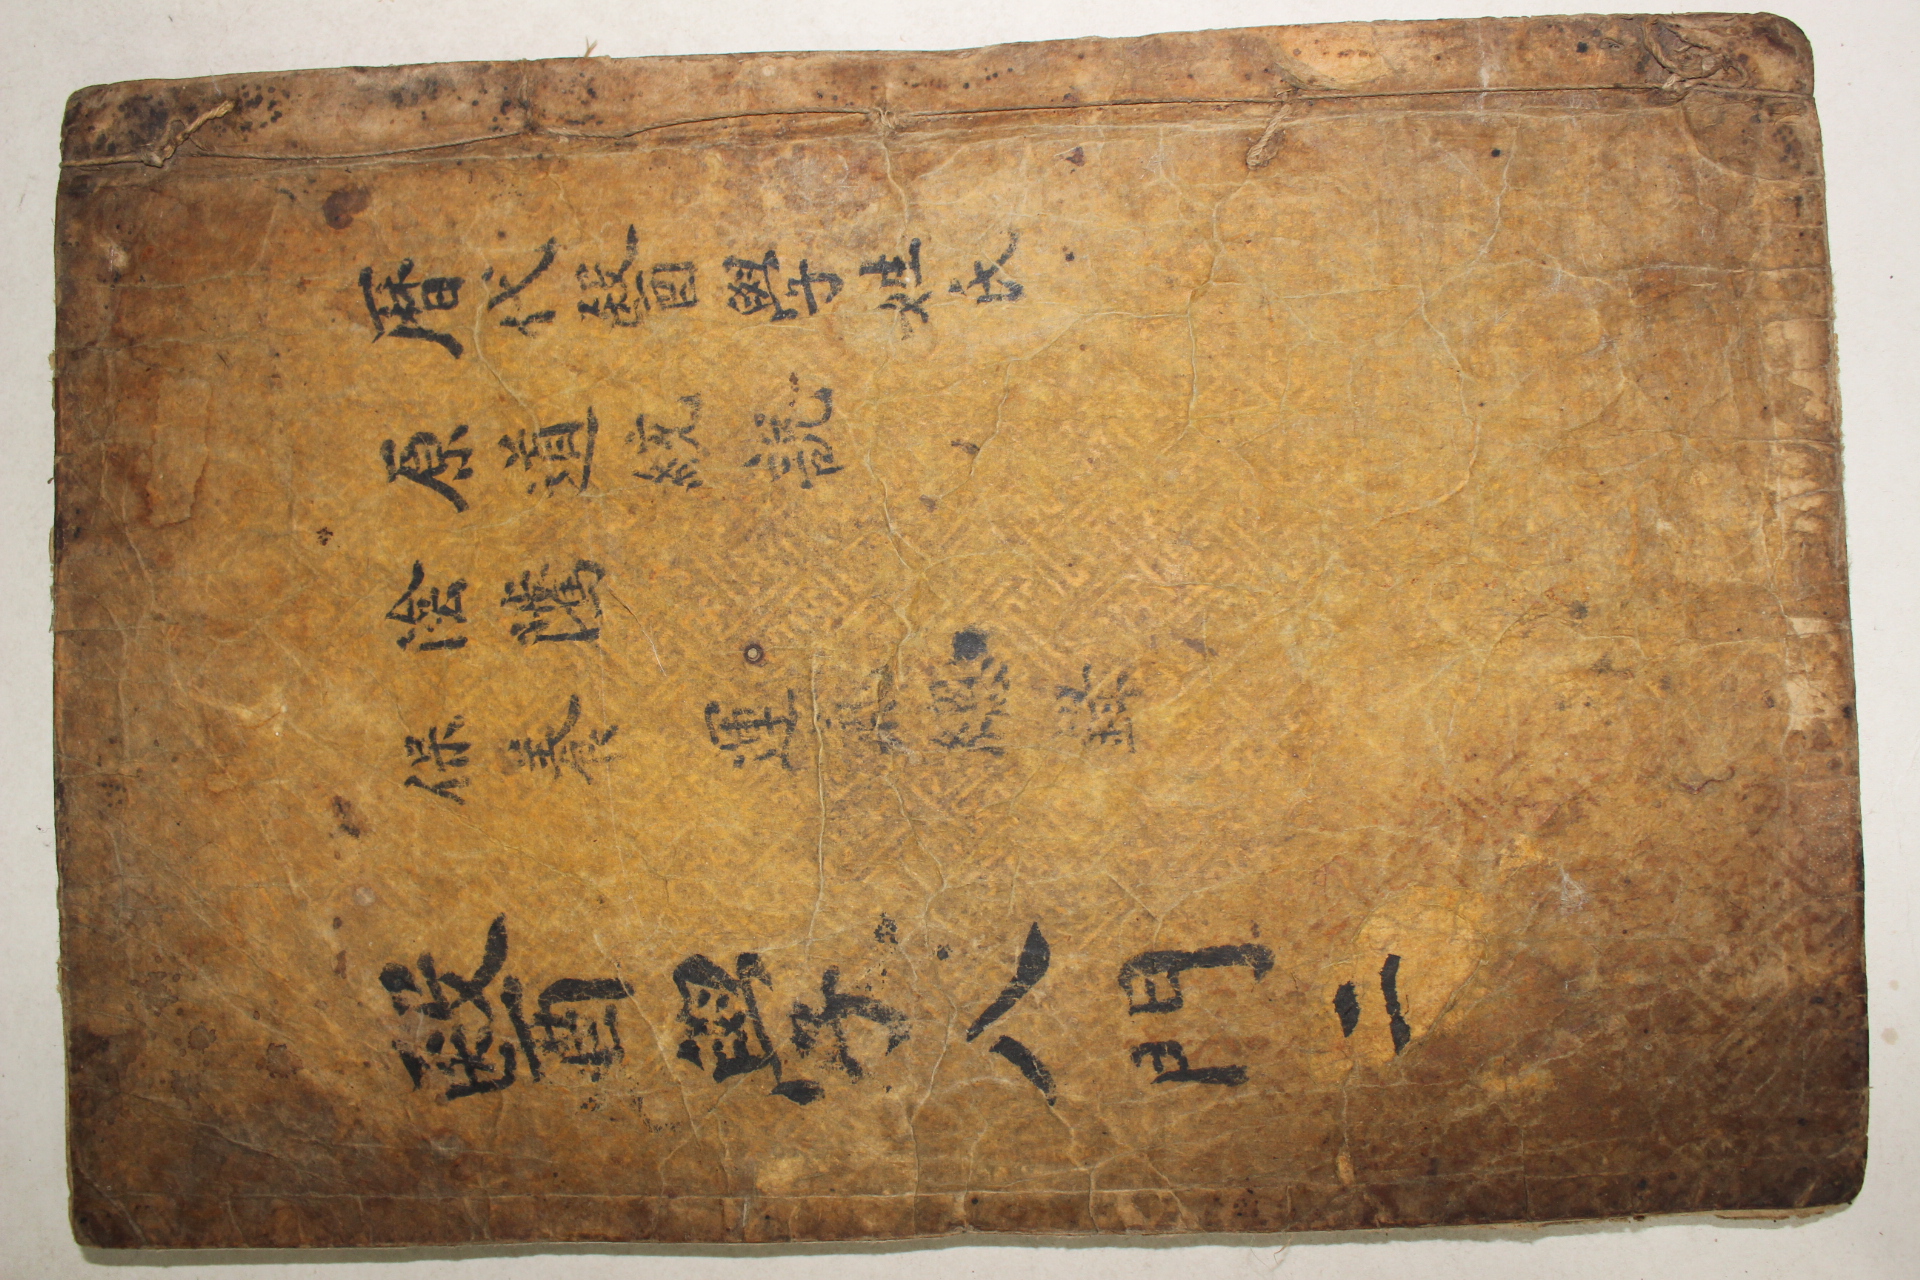 暦代醫學姓氏
原道統説
陰隲
保養 運氣總錄
醫學八門 二